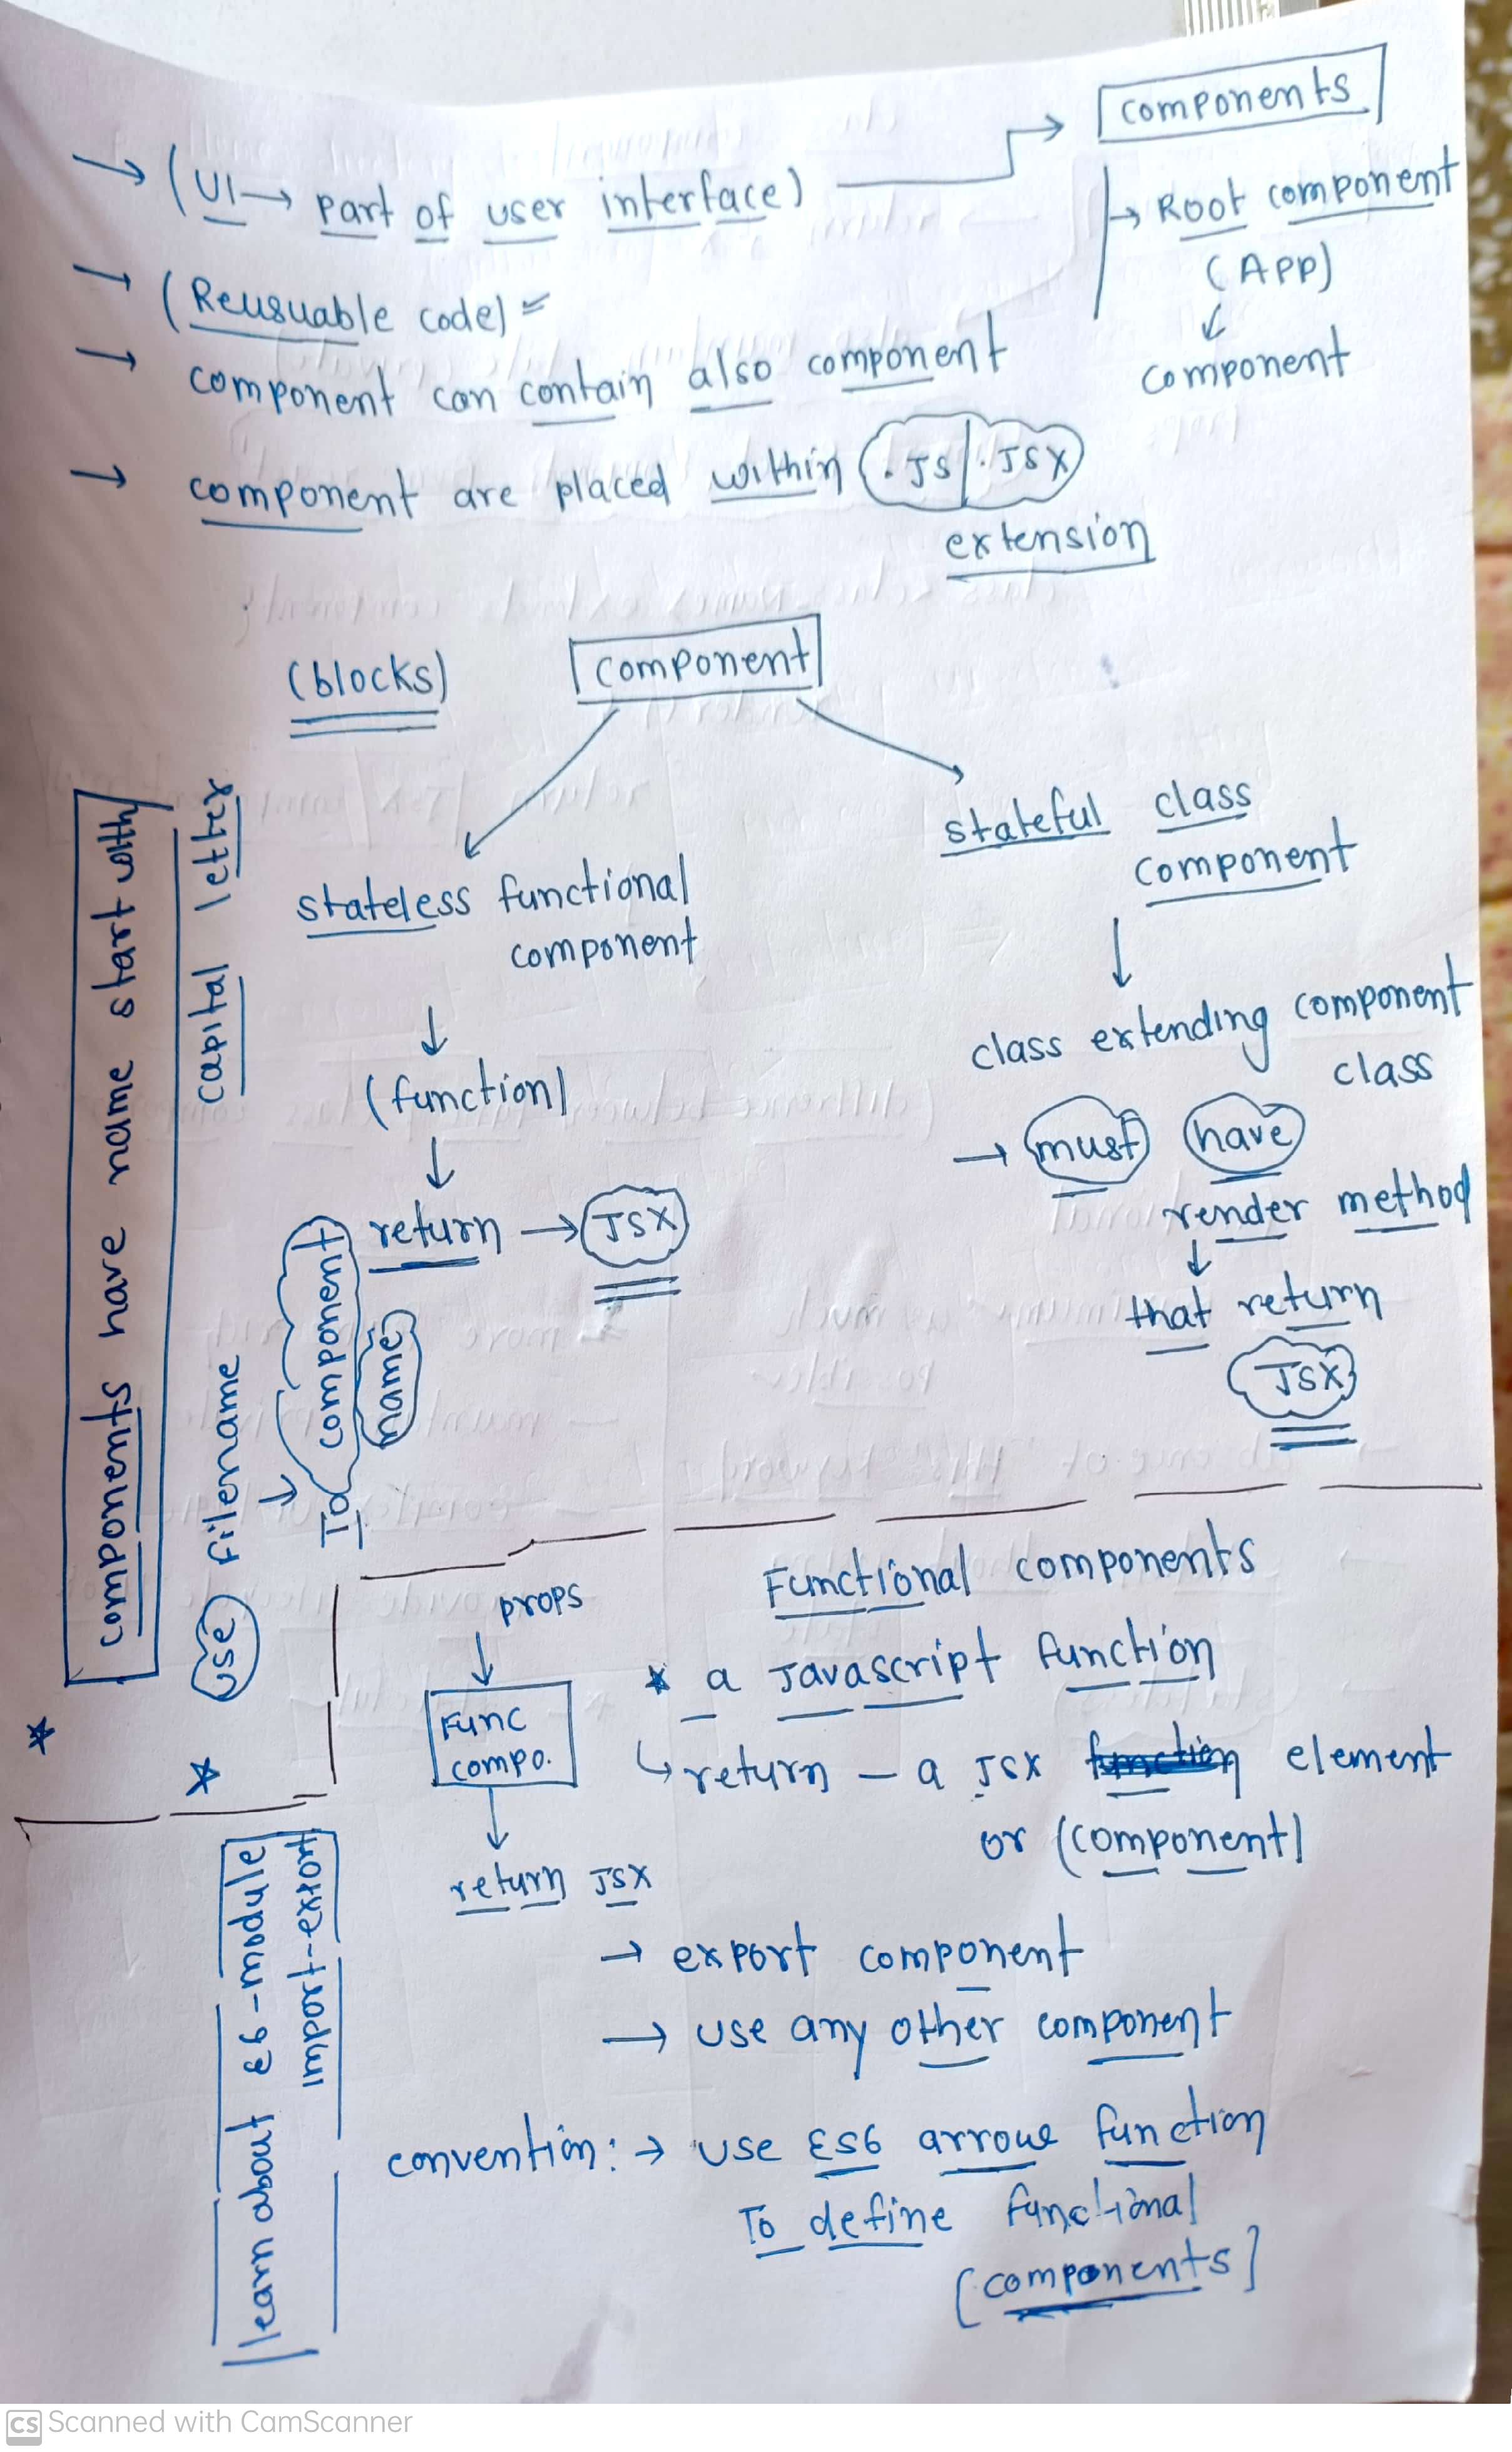 components
→ (UI → part of user interface) →
→ Root component
(APP)
↓
component
→ (Reusuable code)
→ component can contain also component
→ component are placed within (.JS/.JSX)
extension
(blocks)
component
stateless functional
component
↓
(function)
↓
return → JSX
stateful class
component
↓
class extending component
class
→ must have
render method
↓
that return
JSX
* components have name start with
capital letter
* use filename
→ To component
name
props
↓
Func
compo.
↓
return JSX
Functional components
* a Javascript function
↳ return – a JSX function element
or (component)
→ export component
→ use any other component
convention: → use ES6 arrowe function
To define functional
[components]
learn about E6-module
import-export
CS Scanned with CamScanner